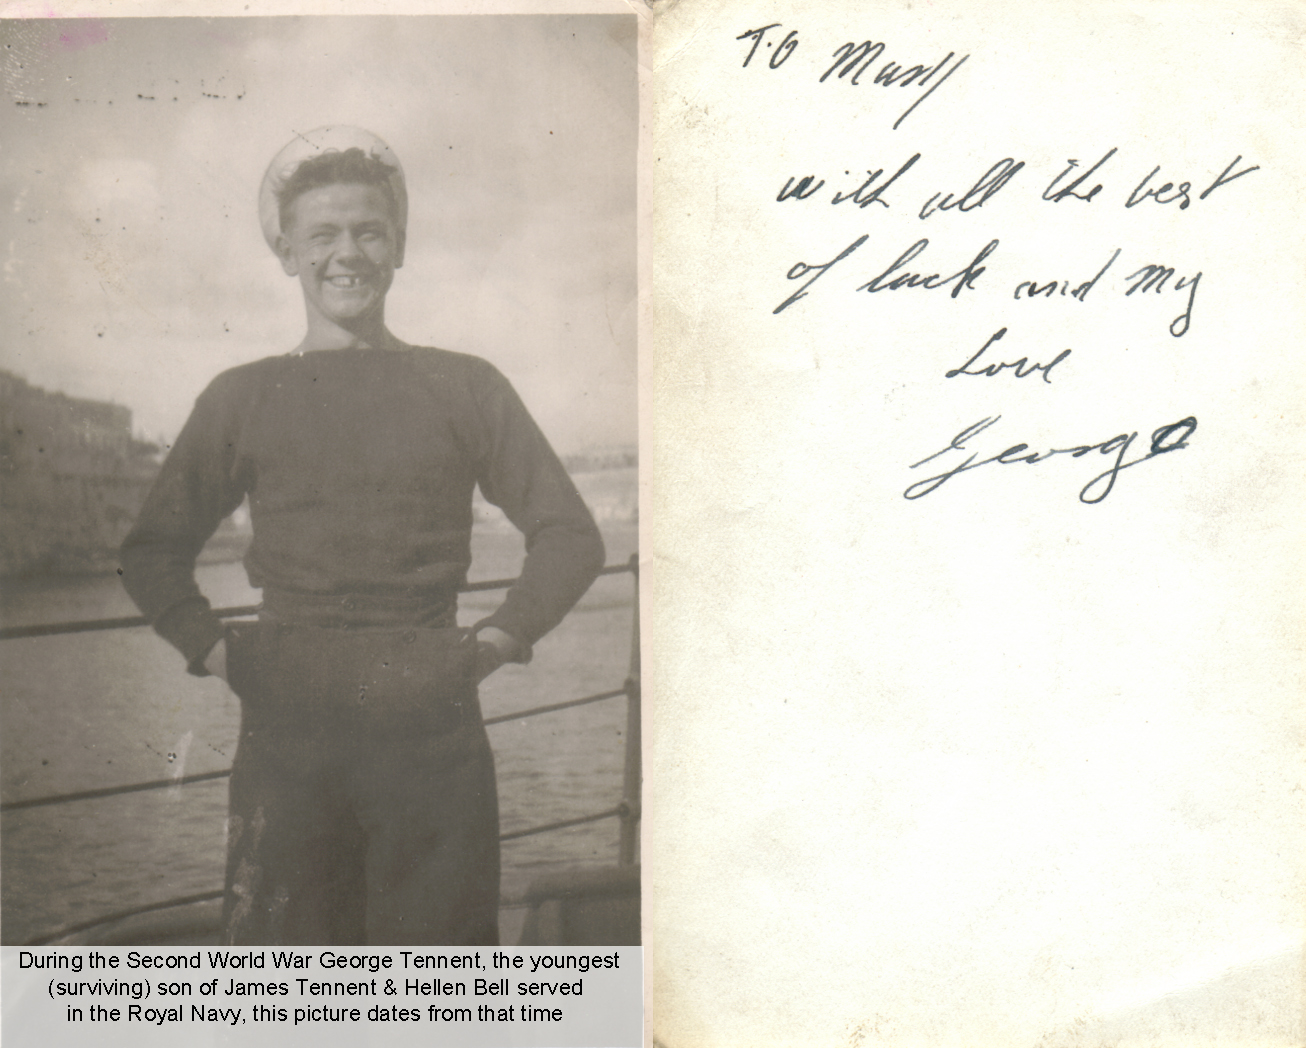 During the Second World War George Tennent, the youngest
(surviving) son of James Tennent & Hellen Bell served
in the Royal Navy, this picture dates from that time
To Mary
with all the best
of luck and my
Love
George